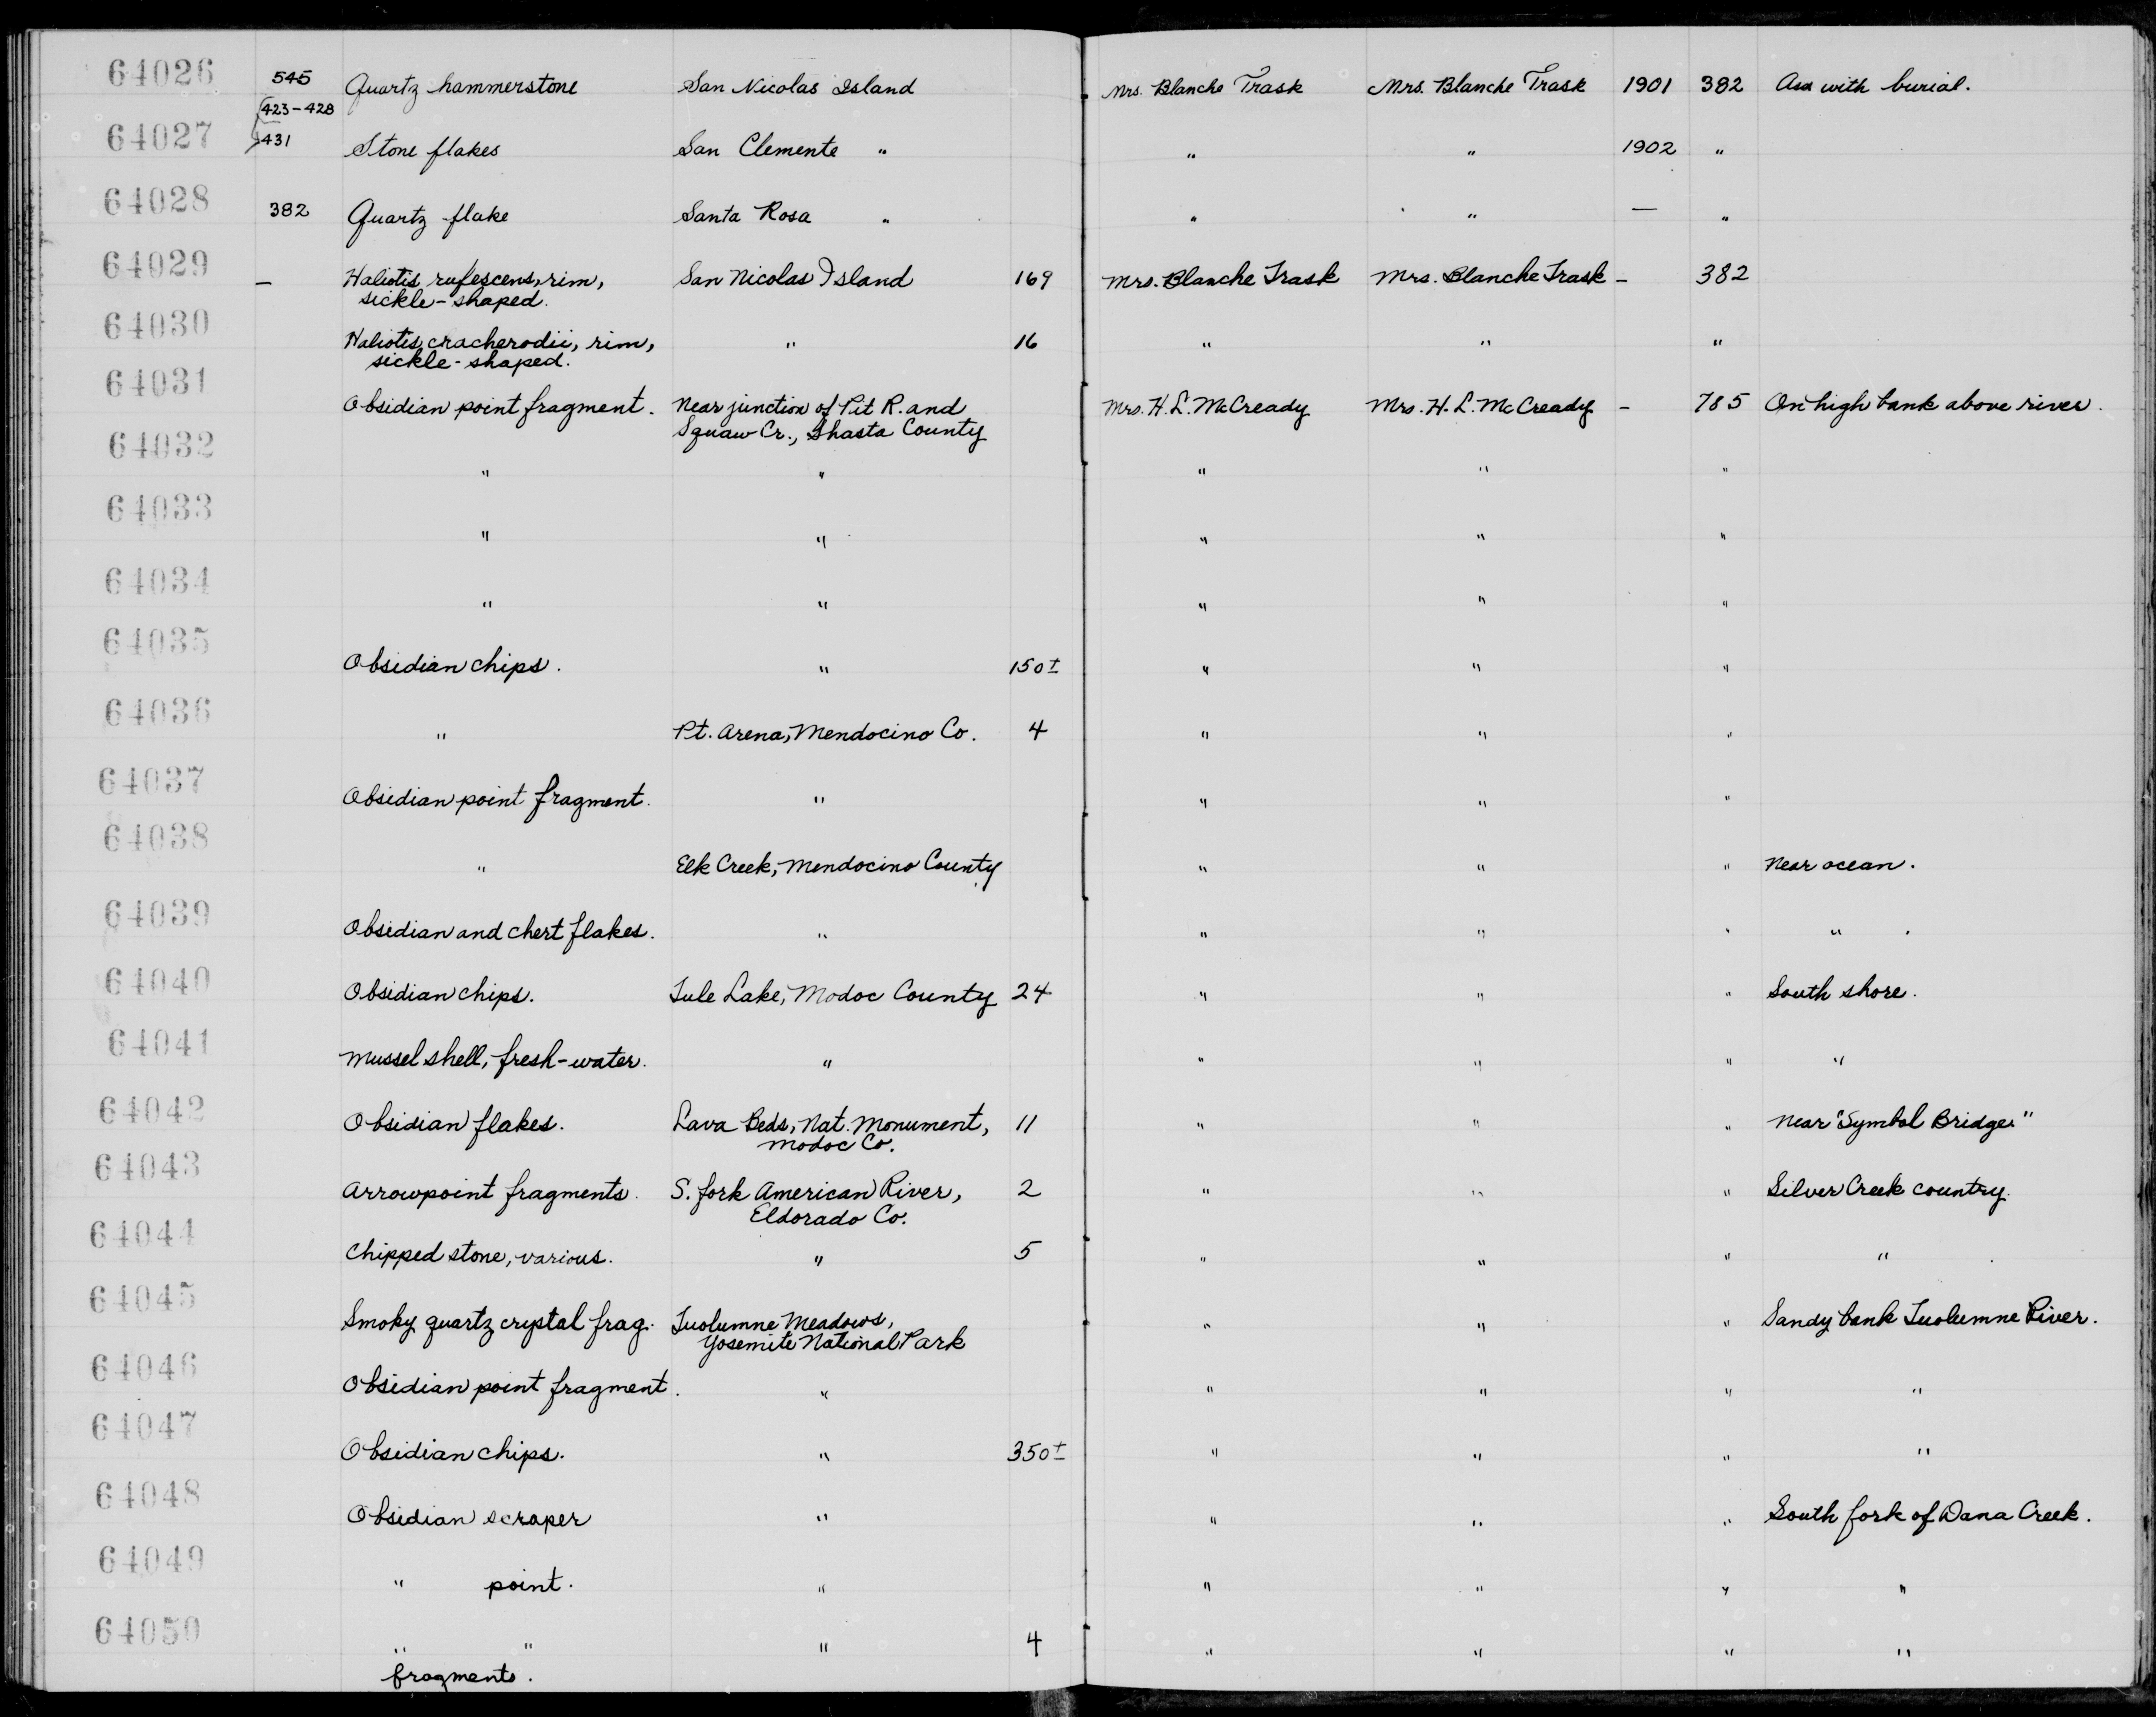 64026 545 Quartz hammerstone San Nicolas Island Mrs. Blanche Trask Mrs. Blanche Trask 1901 382 Ass with burial.
423-428
64027 431 Stone flakes San Clemente " " " 1902 "
64028 382 Quartz flake Santa Rosa " " " — "
64029 — Haliotis rufescens, rim, San Nicolas Island 169 Mrs. Blanche Trask Mrs. Blanche Trask – 382
sickle-shaped.
64030 Haliotis cracherodii, rim, " 16 " " "
sickle-shaped.
64031 Obsidian point fragment. Near junction of Pit R. and Mrs. H. L. McCready Mrs. H. L. McCready – 785 On high bank above river.
Squaw Cr., Shasta County
64032 " " " " "
64033 " " " " "
64034 " " " " "
64035 Obsidian chips. " 150± " " "
64036 " Pt. Arena, Mendocino Co. 4 " " "
64037 Obsidian point fragment. " " " "
64038 " Elk Creek, Mendocino County " " " Near ocean.
64039 Obsidian and chert flakes. " " " " " .
64040 Obsidian chips. Tule Lake, Modoc County 24 " " " South shore.
64041 Mussel shell, fresh-water. " " " " "
64042 Obsidian flakes. Lava Beds, Nat. Monument, 11 " " " Near "Symbol Bridge."
Modoc Co.
64043 Arrowpoint fragments. S. fork American River, 2 " " " Silver Creek country.
Eldorado Co.
64044 Chipped stone, various. " 5 " " " "
64045 Smoky quartz crystal frag. Tuolumne Meadows, " " " Sandy bank Tuolumne River.
Yosemite National Park
64046 Obsidian point fragment. " " " " "
64047 Obsidian chips. " 350± " " " "
64048 Obsidian scraper " " " " South fork of Dana Creek.
64049 " point. " " " " "
64050 " " " 4 " " " "
fragments.